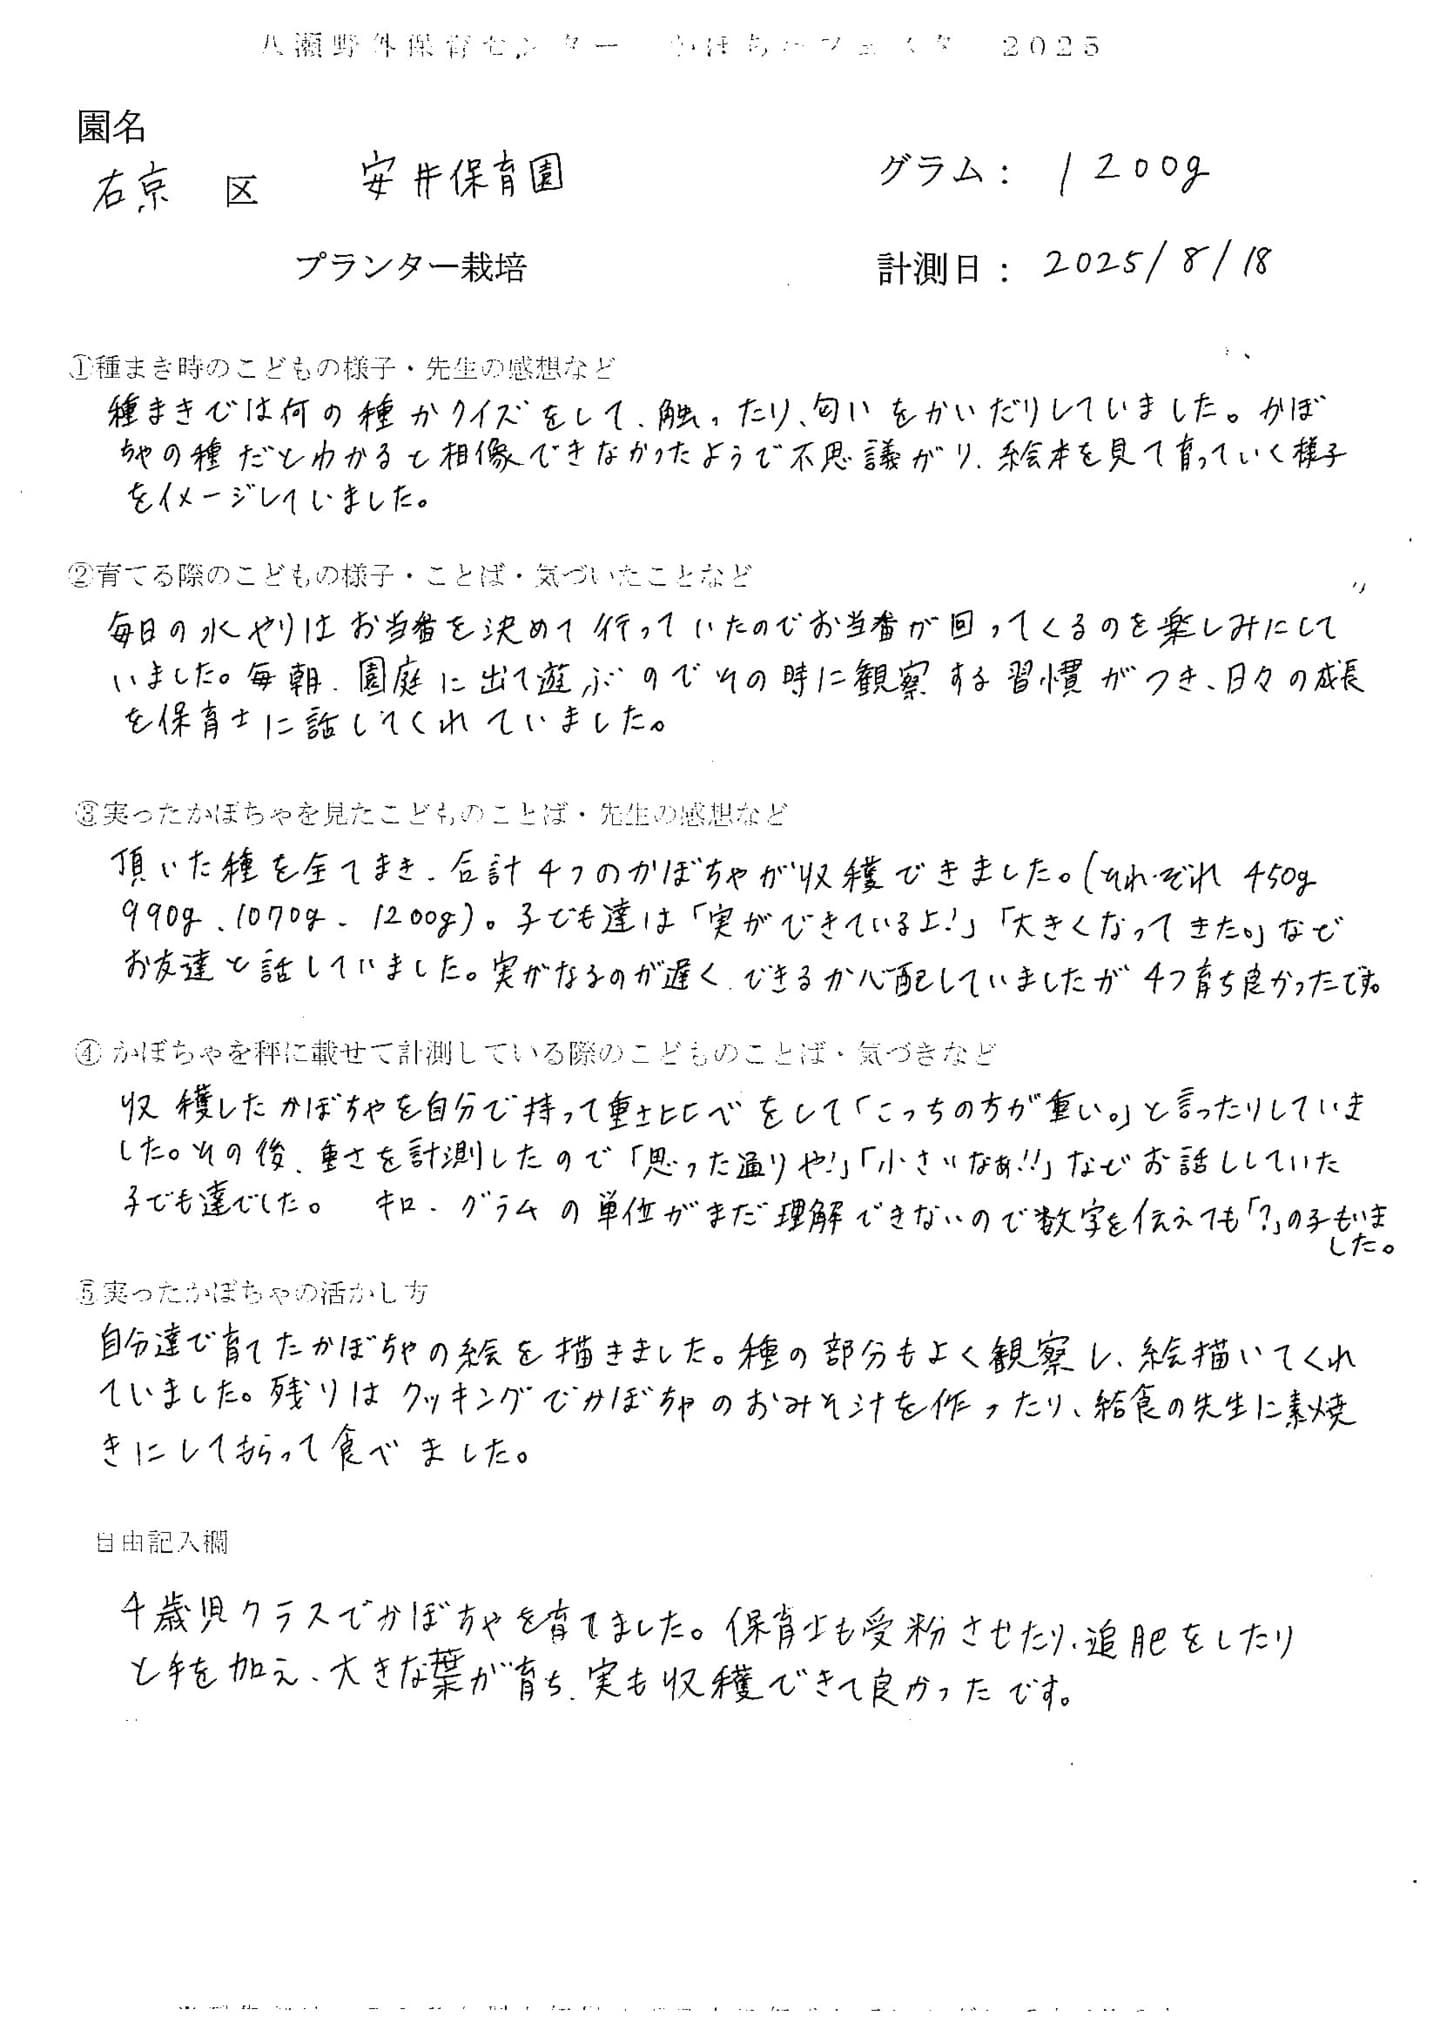 八瀬野外保育センター かぼちゃフェスタ 2025
園名
右京 区 安井保育園
グラム： 1200g
プランター栽培
計測日： 2025/8/18
①種まき時のこどもの様子・先生の感想など
種まきでは何の種かクイズをして、触ったり、匂いをかいだりしていました。かぼ
ちゃの種だとわかると相像できなかったようで不思議がり、絵本を見て育っていく様子
をイメージしていました。
②育てる際のこどもの様子・ことば・気づいたことなど
毎日の水やりはお当番を決めて行っていたのでお当番が回ってくるのを楽しみにして
いました。毎朝、園庭に出て遊ぶのでその時に観察する習慣がつき、日々の成長
を保育士に話してくれていました。
③実ったかぼちゃを見たこどものことば・先生の感想など
頂いた種を全てまき、合計4つのかぼちゃが収穫できました。(それぞれ 450g
990g、1070g、1200g)。子ども達は「実ができているよ!」「大きくなってきた。」など
お友達と話していました。実がなるのが遅く、できるか心配していましたが4つ育ち良かったです。
④かぼちゃを秤に載せて計測している際のこどものことば・気づきなど
収穫したかぼちゃを自分で持って重さ比べをして「こっちの方が重い。」と言ったりしていま
した。その後、重さを計測したので「思った通りや!」「小さいなぁ!!」などお話ししていた
子ども達でした。 キロ、グラムの単位がまだ理解できないので数字を伝えても「?」の子もいま
した。
⑤実ったかぼちゃの活かし方
自分達で育てたかぼちゃの絵を描きました。種の部分もよく観察し、絵描いてくれ
ていました。残りはクッキングでかぼちゃのおみそ汁を作ったり、給食の先生に素焼
きにしてもらって食べました。
自由記入欄
4歳児クラスでかぼちゃを育てました。保育士も受粉させたり、追肥をしたり
と手を加え、大きな葉が育ち、実も収穫できて良かったです。